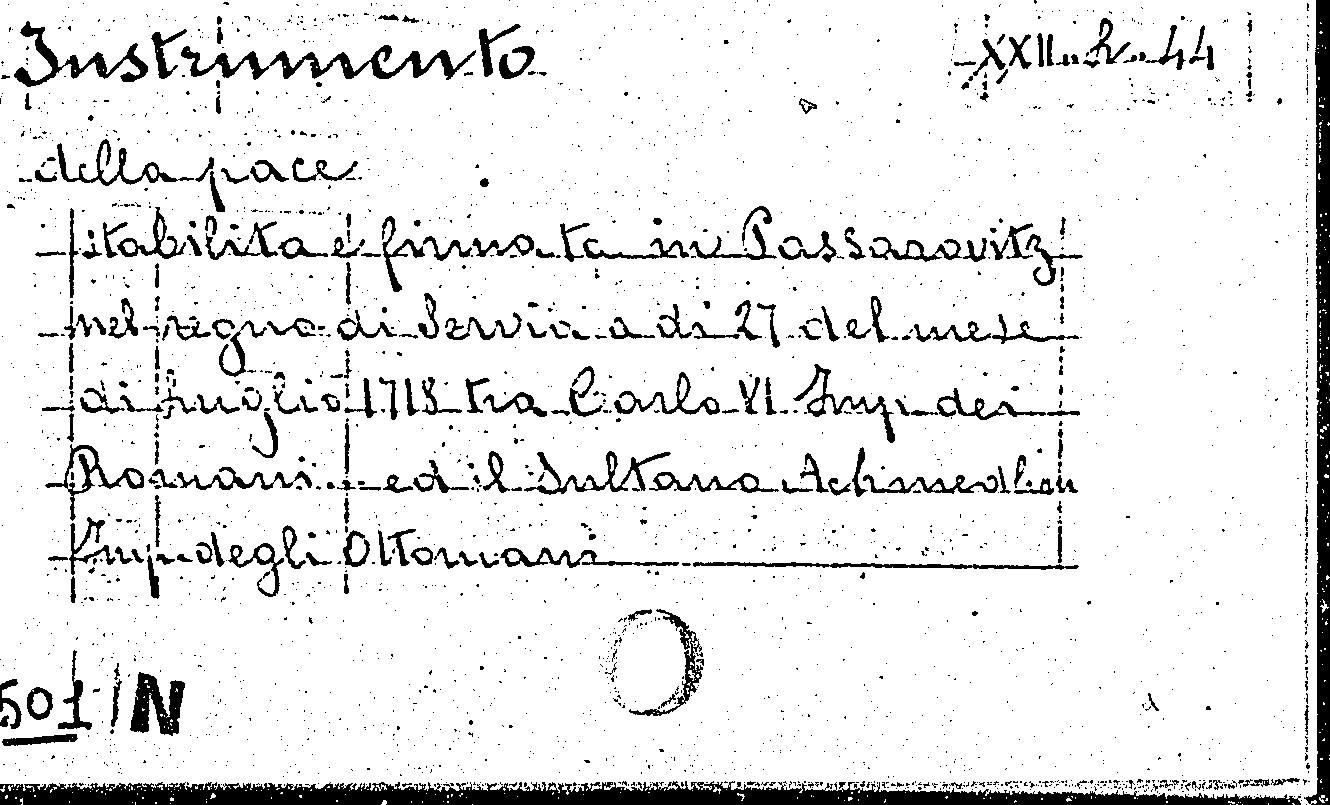 Instrumento
XXII. h. 44
della pace
stabilita e firmata in Passarovitz
nel regno di Servia a di 27 del mese
di luglio 1718 tra Carlo VI Imp. dei
Romani... ed il Sultano Achmedhan
Imp. degli Ottomani
501 N